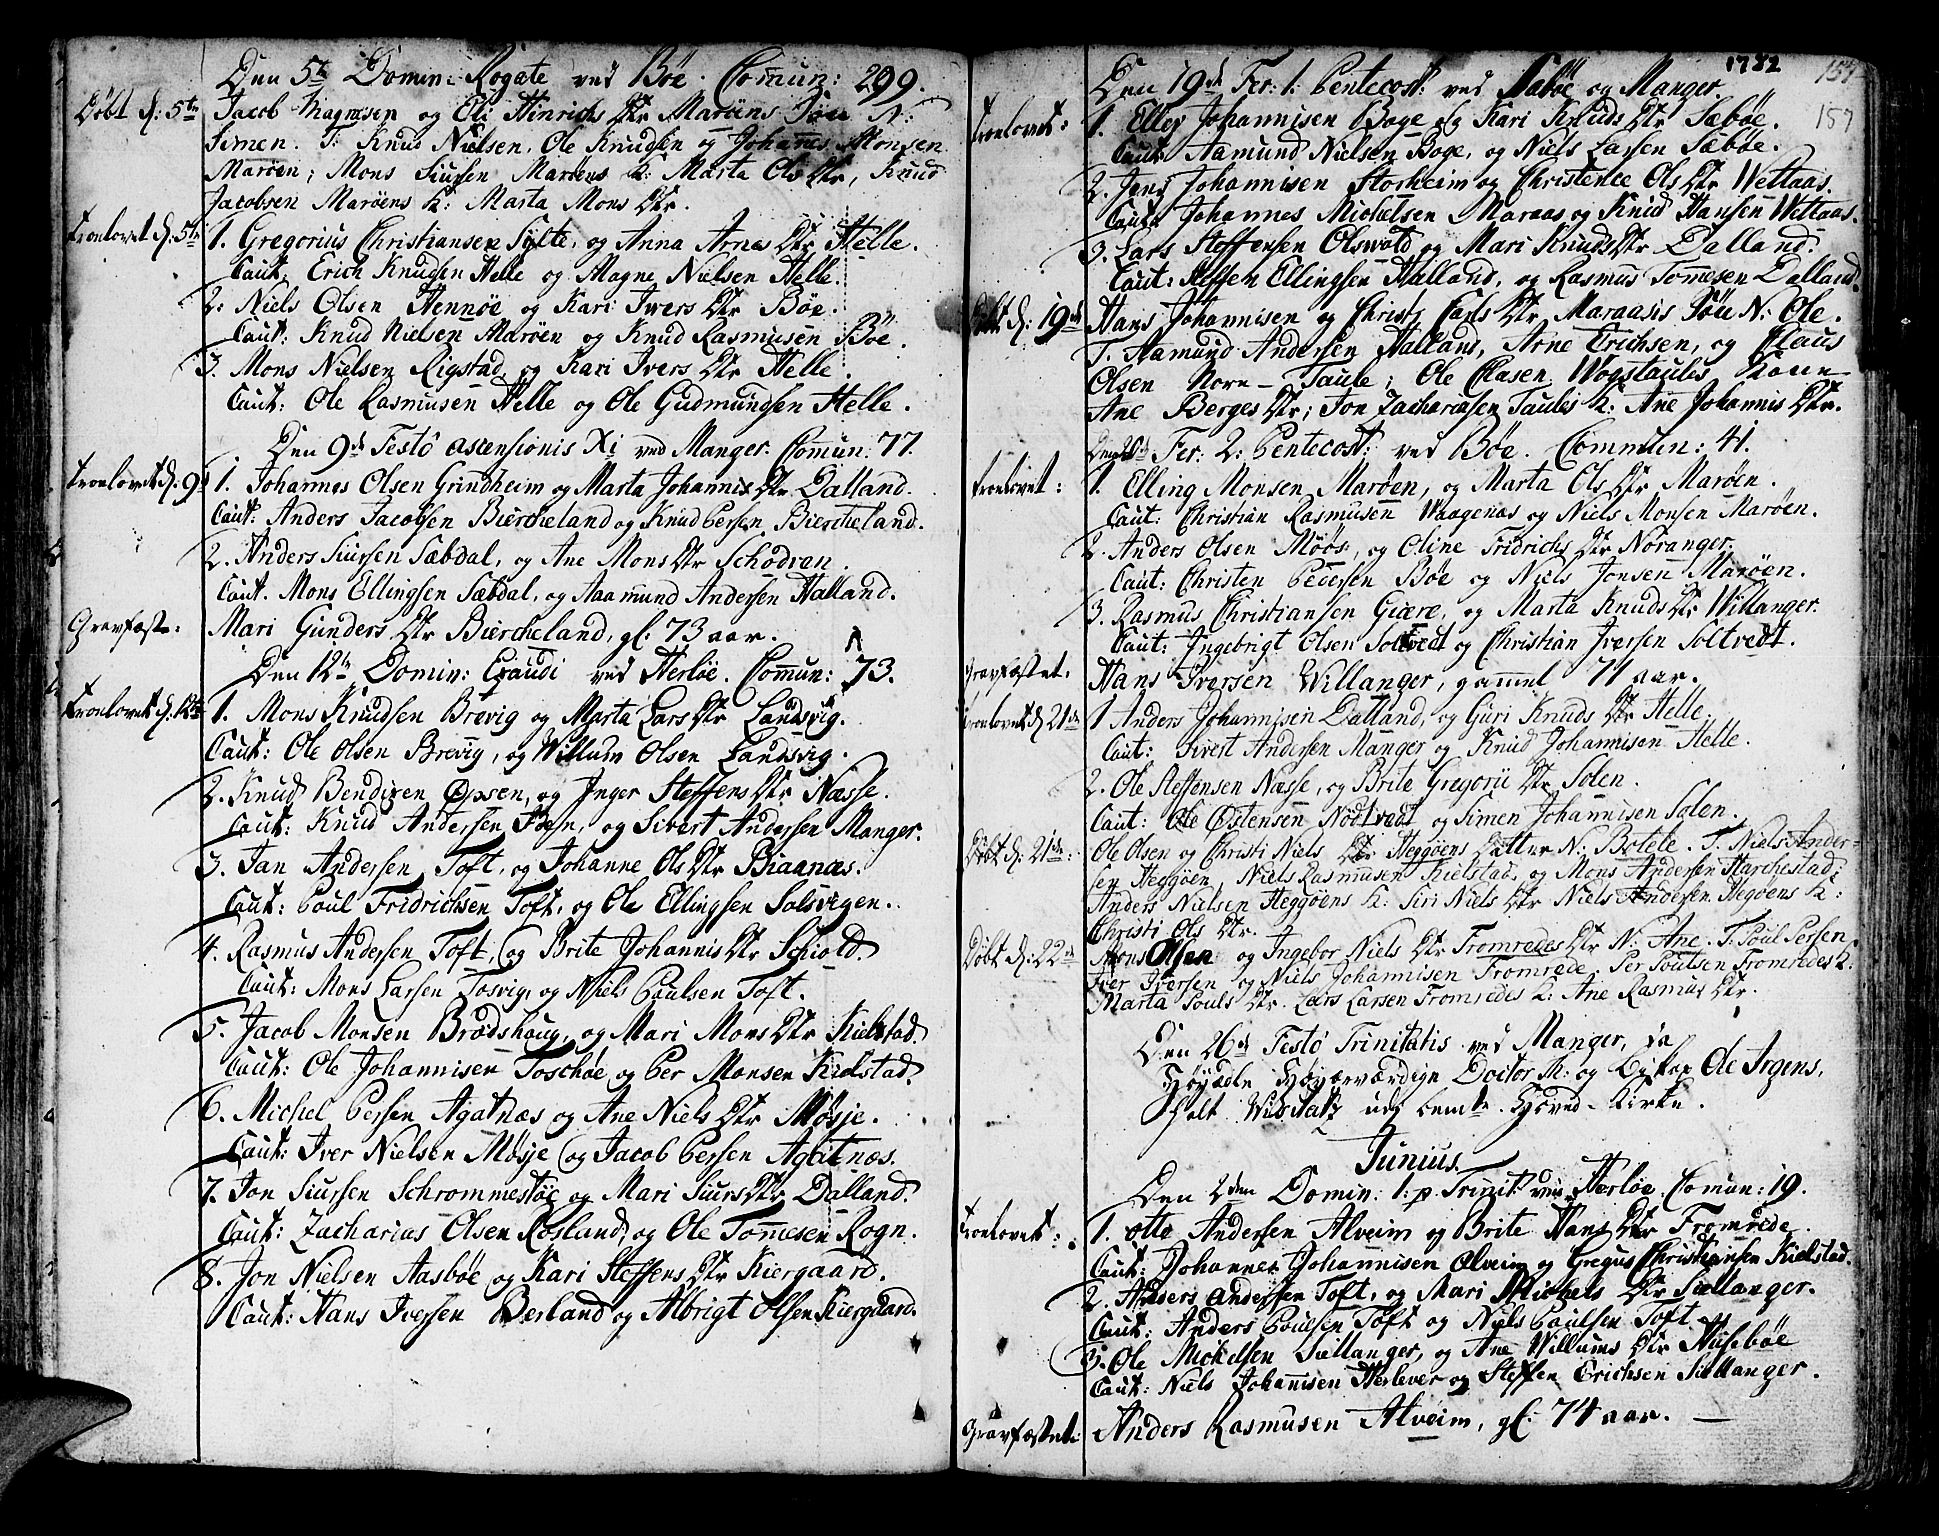 Den 5te Domin: Rogate ved Böe. Comun: 299.
Döbt d: 5te Jacob Magnesen og Eli Hinrichs Dtr Maröens Sön N:
Simen. T: Knud Nielsen, Ole Knudsen og Johannes Monsen
Maröen; Mons Siursen Maröens K: Marta Ols Dtr, Knud
Jacobsen Maröens K: Marta Mons Dtr.
Troelovet d: 5te 1. Gregorius Christiansen Sylte, og Anna Arnes Dtr Helle.
Caut: Erich Knudsen Helle og Magne Nielsen Helle.
2: Niels Olsen Hennöe og Kari Ivers Dtr Böe.
Caut: Knud Nielsen Maröen og Knud Rasmusen Böe.
3. Mons Nielsen Rigstad og Kari Ivers Dtr Helle.
Caut: Ole Rasmusen Helle og Ole Gudmundsen Helle.
Den 9de Festo ascensionis Xi ved Manger. Comun: 77.
Troelovet d: 9de 1. Johannes Olsen Grindheim og Marta Johannis Dtr Dalland.
Caut: Anders Jacobsen Biercheland og Knud Persen Biercheland.
2. Anders Siursen Sæbdal, og Ane Mons Dtr Schodven.
Caut. Mons Ellingsen Sæbdal, og Aamund Andersen Halland.
Gravfæst: Mari Gunders Dtr Biercheland, gl: 73 aar.
Den 12te Domin: Exaudi ved Herlöe. Comun: 73.
Troelovet d: 12te 1. Mons Knudsen Brevig og Marta Lars Dtr Landsvig.
Caut: Ole Olsen Brevig, og Willum Olsen Landsvig.
2. Knud Bendixen Opsen, og Inger Steffens Dtr Næsse.
Caut: Knud Andersen Foesn, og Sivert Andersen Manger.
3. Jan Andersen Toft, og Johanne Ols Dtr Biaanæs.
Caut: Poul Fridrichsen Toft, og Ole Ellingsen Solsvigen.
4. Rasmus Andersen Toft, og Brite Johannis Dtr Schiold.
Caut: Mons Larsen Tosvig, og Niels Poulsen Toft.
5. Jacob Monsen Brædshaug, og Mari Mons Dtr Kielstad.
Caut: Ole Johannisen Toschöe og Per Monsen Kielstad.
6. Michel Persen Agatnæs og Ane Niels Dtr Møsje.
Caut: Iver Nielsen Møsje og Jacob Persen Agatnæs.
7. Jon Siursen Schrommestöe og Mari Siurs Dtr Dalland.
Caut: Zacharias Olsen Rosland, og Ole Tomesen Rogn.
8. Jon Nielsen Aasböe og Kari Steffens Dtr Kiergaard.
Caut: Hans Iversen Berland og Albrigt Olsen Kiergaard.
1782
157
157
Den 19de Fer: 1. Pentecost: ved Sæböe og Manger
Troelovet: 1. Ellef Johannisen Boge og Kari Knuds Dtr Sæböe.
Caut: Aamund Nielsen Boge, og Niels Larsen Sæböe.
2. Jens Johannisen Storheim og Christence Ols Dtr Wettaas.
Caut: Johannes Michelsen Maraas og Knud Hansen Wettaas.
3. Lars Steffensen Olsvold og Mari Knuds Dtr Dalland.
Caut: Steffen Ellingsen Halland, og Rasmus Tomesen Dalland.
Döbt d: 19de Hans Johannisen og Christi Carls Dtr Maraasis Sön N: Ole.
T. Aamund Andersen Halland, Arne Erichsen, og Claus
Olsen Norn-Taule; Ole Clasen Wogstaules Kone
Ane Berges Dtr; Jon Zachariasen Taules K: Ane Johannis Dtr.
Den 20de Fer: 2: Pentecost: ved Böe. Commun: 41.
Troelovet: 1. Elling Monsen Maröen, og Marta Ols Dtr Maröen.
Caut: Christian Rasmusen Waagenæs og Niels Monsen Maröen.
2. Anders Olsen Möös, og Oline Fridrichs Dtr Noranger.
Caut: Christen Pedersen Böe og Niels Jonsen Maröen.
3. Rasmus Christiansen Giære, og Marta Knuds Dtr Willanger.
Caut: Ingebrigt Olsen Soltvedt og Christian Iversen Soltvedt.
Gravfæstet. Hans Iversen Willanger, gammel 71 aar.
Troelovet d: 21de 1 Anders Johannisen Dalland, og Guri Knuds Dtr Helle.
Caut: Sivert Andersen Manger og Knud Johannisen Helle.
2. Ole Steffensen Næsse, og Brite Gregorii Dtr Solen.
Caut: Ole Østensen Nödtvedt og Simen Johannisen Solen.
Döbt d: 21de: Ole Olsen og Christi Niels Dtr Heggöens Datter N: Botele. T. Niels Ander-
sen Heggöen, Niels Rasmusen Kielstad, og Mons Andersen Harchestad;
Anders Nielsen Heggöens K: Siri Niels Dtr Niels Andersen Hegöens K:
Christi Ols Dtr.
Döbt d: 22de Mons Olsen og Ingebor Niels Dtr Fromredes Dtr N: Ane. T: Poul Persen
Iver Iversen og Niels Johannisen Fromrede. Per Poulsen Fromredes K:
Marta Pouls Dtr. Lars Larsen Fromredes K: Ane Rasmus Dtr.
Den 26de Festo Trinitatis ved Manger, da
Höyædle Höyærværdige Doctor Th: og Biskop Ole Irgens,
holt Wisitatz udi bemte Hoved-Kirke.
Junius.
Den 2den Domin: 1. p. Trinit: ved Herlöe. Comun: 19.
Troelovet: 1. Otte Andersen Alveim og Brite Hans Dtr Fromrede.
Caut: Johannes Johannisen Olveim og Gregus Christiansen Kielstad.
2. Anders Andersen Toft, og Mari Michels Dtr Sællanger.
Caut: Anders Poulsen Toft og Niels Poulsen Toft.
3. Ole Mickelsen Sællanger, og Ane Willums Dtr Huseböe
Caut: Niels Johannisen Herlever og Steffen Erichsen Sællanger.
Gravfæstet: Anders Rasmusen Alveim, gl: 74 aar. —